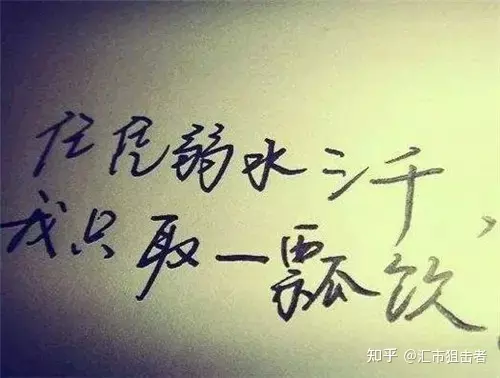 任凭弱水三千,
我只取一瓢饮.
知乎 @汇市狙击者